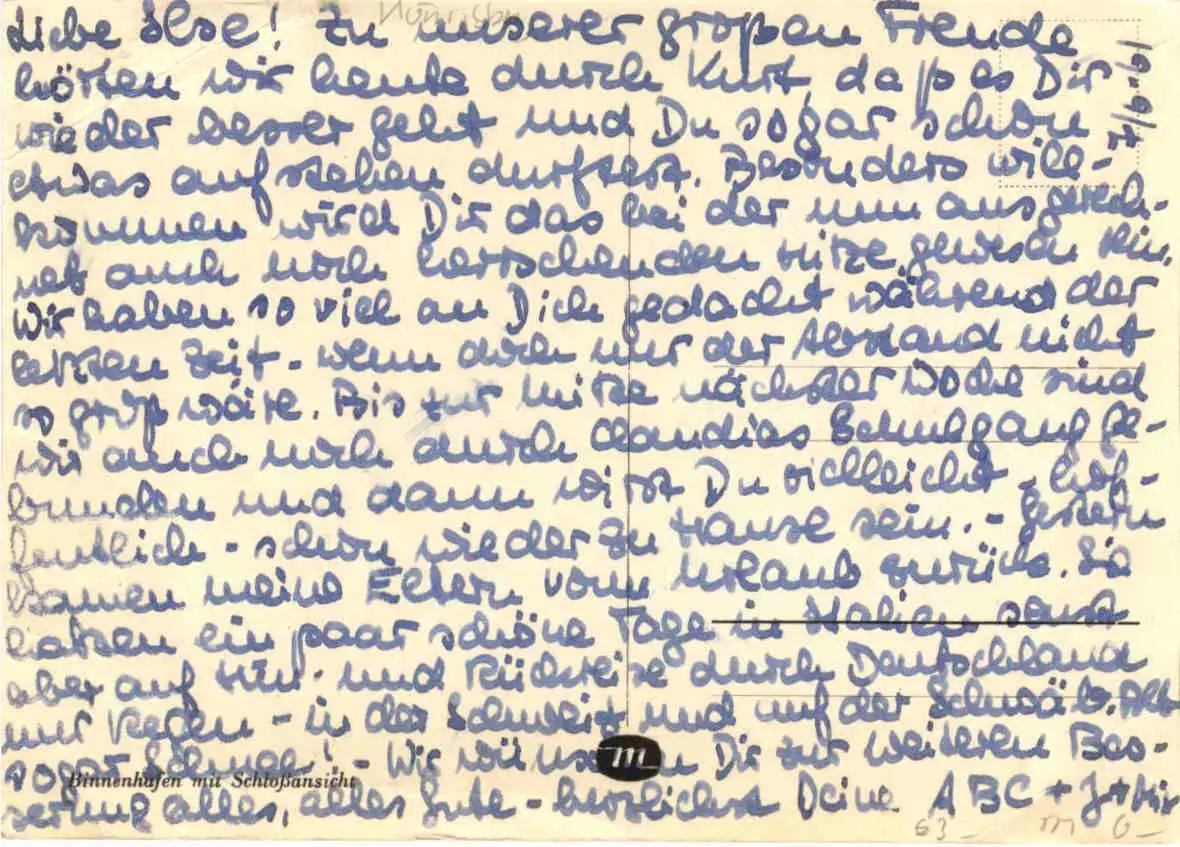 Liebe Ilse! Zu unserer großen Freude
hörten wir heute durch Kurt, daß es Dir
wieder besser geht und Du sogar schon
etwas aufstehen durftest. Besonders will-
kommen wird Dir das bei der nun ausgerech-
net auch noch herrschenden Hitze gewesen sein.
Wir haben so viel an Dich gedacht während der
letzten Zeit - wenn doch nur der Abstand nicht
so groß wäre. Bis zur Mitte nächster Woche sind
wir auch noch durch Claudias Schulgang ge-
bunden und dann wirst Du vielleicht - hof-
fentlich - schon wieder zu Hause sein. - Gestern
kamen meine Eltern vom Urlaub zurück. Sie
hatten ein paar schöne Tage in Italien sonst
aber auf Hin- und Rückreise durch Deutschland
nur Regen - in der Schweiz und auf der Schwäb. Alb
sogar Schnee! - Wir wünschen Dir zur weiteren Bes-
serung alles, alles Gute - herzlichst Deine ABC + J +
Binnenhafen mit Schloßansicht
m
63 -